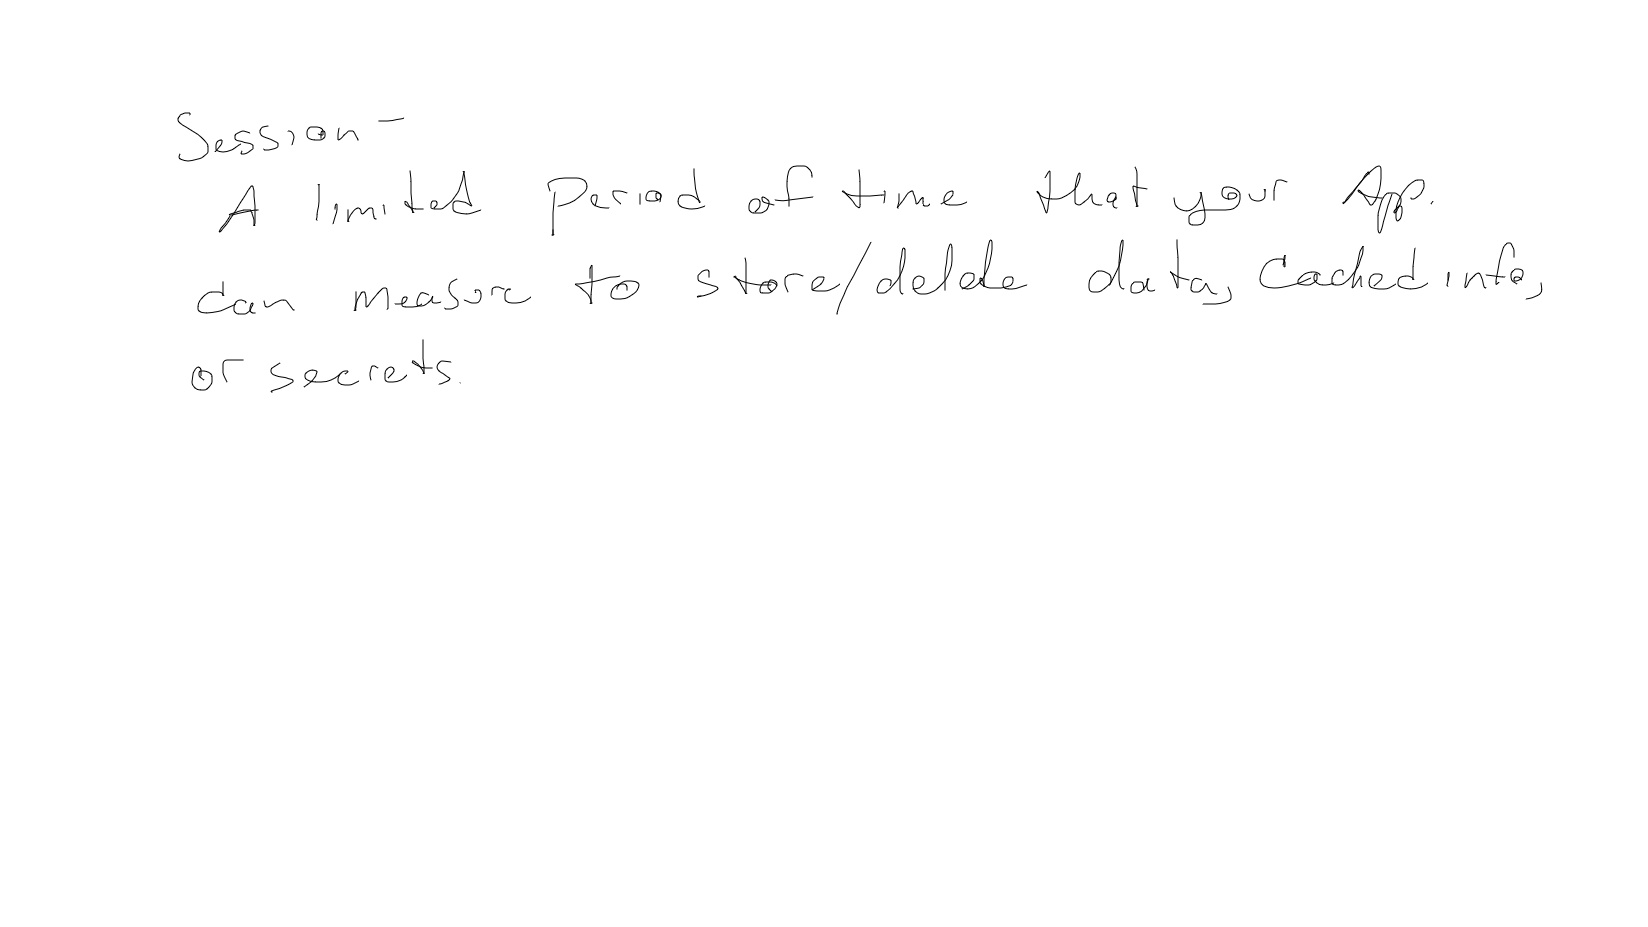 Session -
A limited period of time that your App.
can measure to store/delete data, cached info,
or secrets.